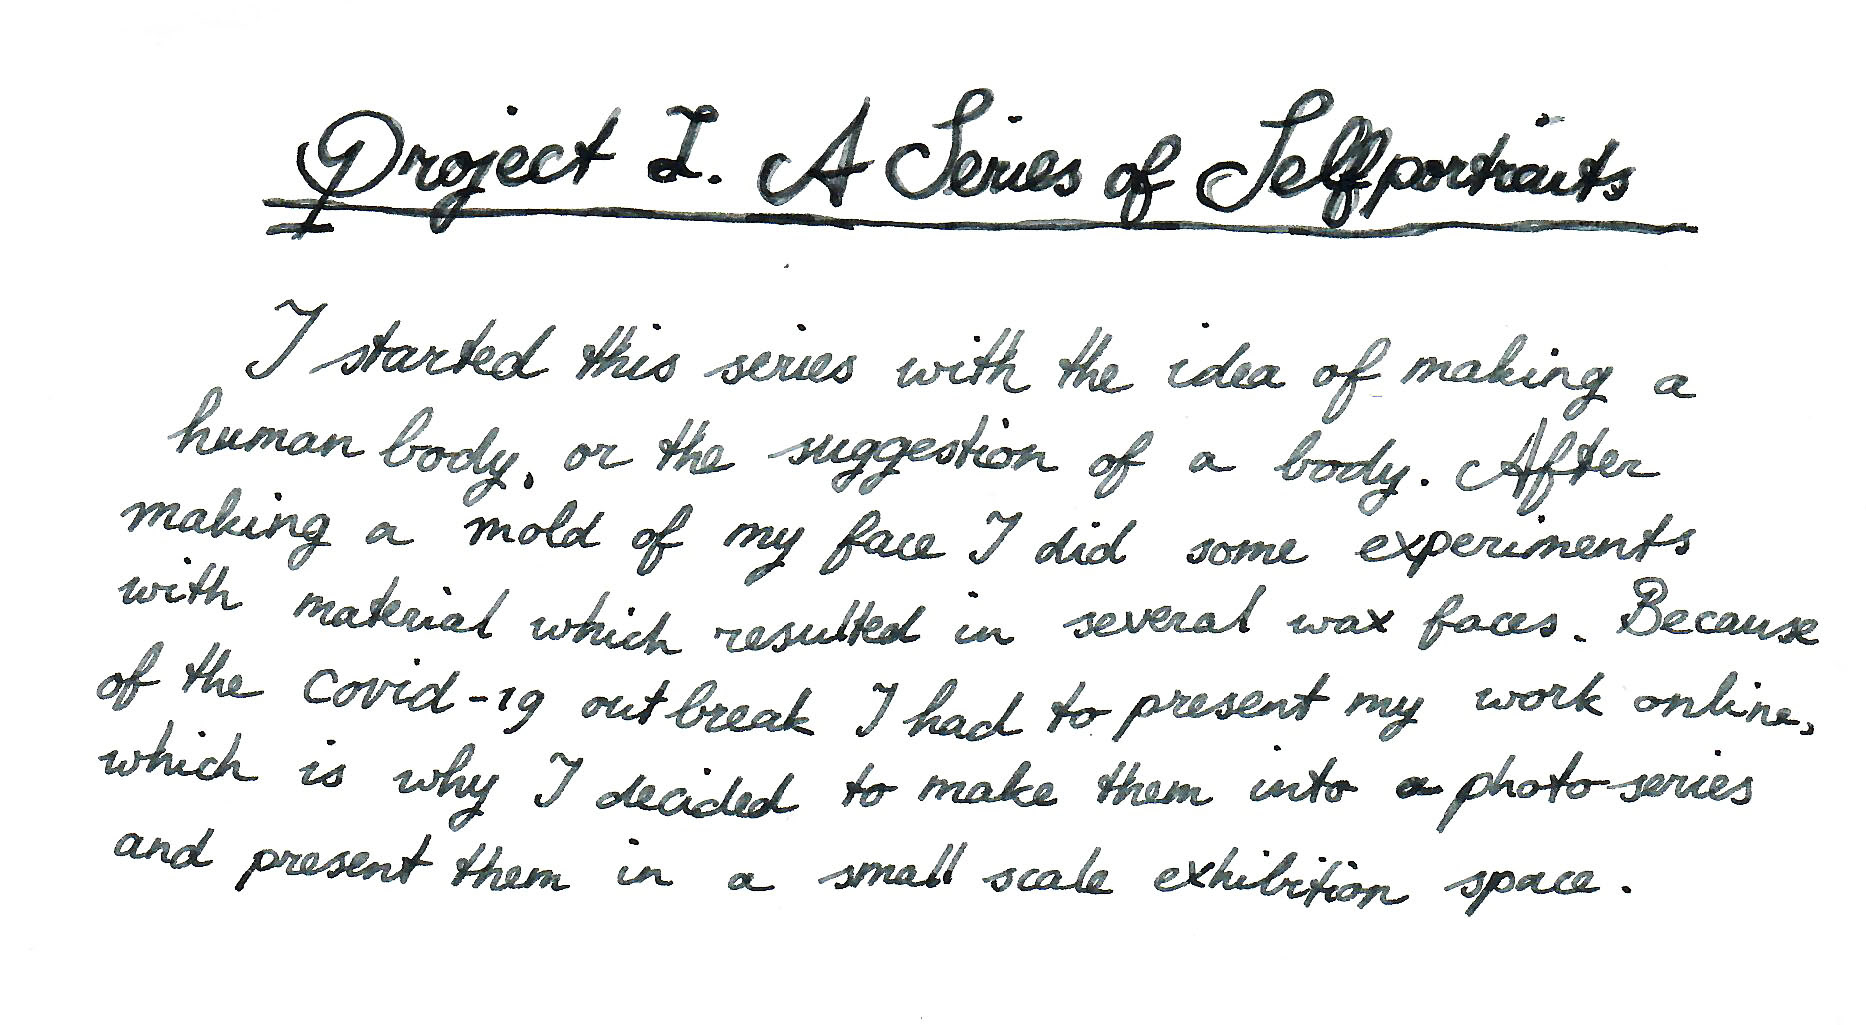 Project I. A Series of Selfportraits
I started this series with the idea of making a
human body, or the suggestion of a body. After
making a mold of my face I did some experiments
with material which resulted in several wax faces. Because
of the covid-19 outbreak I had to present my work online,
which is why I decided to make them into a photo series
and present them in a small scale exhibition space.